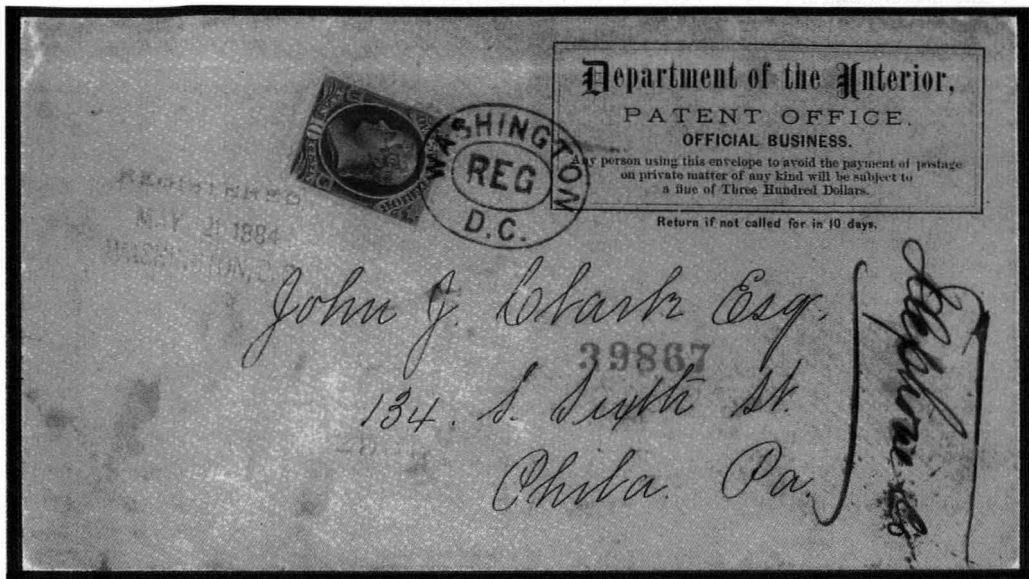 Department of the Interior,
PATENT OFFICE.
OFFICIAL BUSINESS.
Any person using this envelope to avoid the payment of postage
on private matter of any kind will be subject to
a fine of Three Hundred Dollars.
Return if not called for in 10 days.
WASHINGTON
REG
D.C.
REGISTERED
MAY 21 1884
WASHINGTON, D.C.
John J. Clark Esq.
39867
134. S. Sixth St.
Phila. Pa.